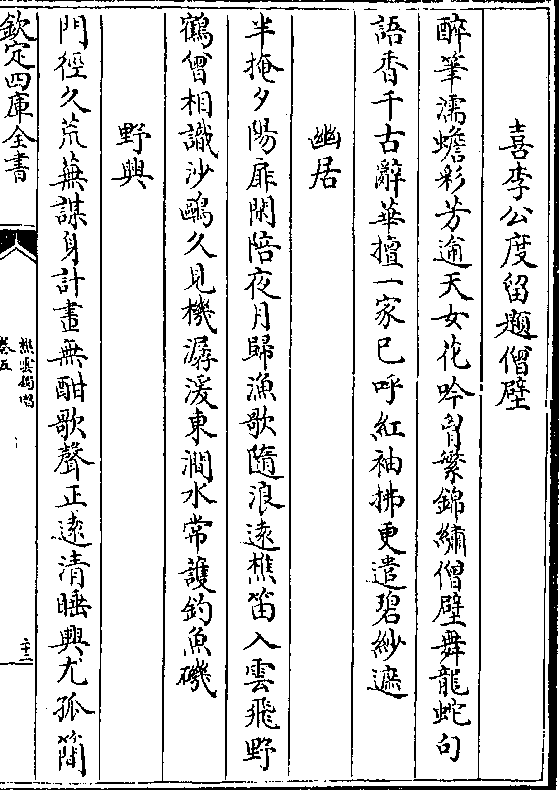 喜李公度留題僧壁
醉筆濡蟾彩芳逾天女花吟胷繁錦繡僧壁舞龍蛇句
語香千古辭華擅一家已呼紅袖拂更遣碧紗遮
幽居
半掩夕陽扉閑陪夜月歸漁歌隨浪遠樵笛入雲飛野
鶴曾相識沙鷗久見機潺湲東澗水常護釣魚磯
野興
門徑久荒蕪謀身計畫無酣歌聲正遠清睡興尤孤簡
欽定四庫全書
樵雲獨唱
卷五